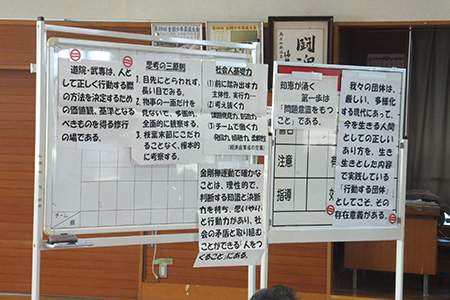 道院・武専は、人と
して正しく行動する際
の方法を決定するため
の価値観、基準となる
べきものを得る修行
の場である。
思考の三原則
1. 目先にとらわれず、
長い目である。
2. 物事の一面だけを
見ないで、多面的、
全面的に観察する。
3. 枝葉末節にこだわ
ることなく、根本的
に考察する。
社会人基礎力
(1) 前に踏み出す力
主体性、実行力…
(2) 考え抜く力
課題発見力、計画力
(3) チームで働く力
発信力、傾聴力、柔軟性
(経済産業省の定義)
金剛禅運動で確かな
ことは、理性的で、
判断する知識と決断
力を持ち、思いやり
と行動力があり、社
会の矛盾と取り組む
ことができる「人をつ
くること」にある。
知恵が湧く
第一歩は
「問題意識をもつ
こと」である。
我々の団体は、
厳しい、多様化
する現代にあって、
今を生きる人間
としての正しい
あり方を、生き
生きとした内容
で実践している
「行動する団体」
としてこそ、その
存在意義がある。
注意
指導
効
チーム
闘